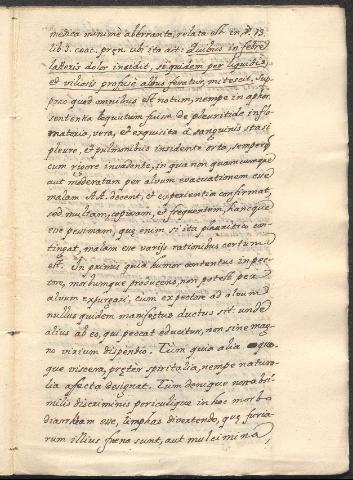 medica minimè aberranta, relata est in p. 73.
lib. 3. coac. prçn. ubi ita ait: Quibus in febre
lateris dolor incidit, si quidem per liquidta,
et viliosis profuse alvus feratur, mitescit. Sup-
pico quod omnibus est notum, nempe in aphor.
sententa loquutum fuisse de pleuritide inflo-
matoria, vera, et exquisita à sanguinis stasi
pleurç, et pulmonibus insidente orta, semperq
cum rigore invadente, in qua non quamcumque
aut moderatam per alvum evacuationem esse
malam AA. docent, et experientia confirmat,
sed multam, copiosam, et frequentem, hancque
esse pessimam, quç enim si ita pleuritico con-
tingat, malam esse varijs rationibus certum
est. In primis quia humor contentus in pec-
tore, morbumque producens, non potest per
alvum expurgari, cum ex pectore ad alvum
nullus quidem manifestus ductus sit: unde
alius ab eo, qui peccat educitur, non sine mag-
no virium dispendio. Tum quia alia quo-
que viscera, prçter spiritalia, nempe natura-
lia affecta designat. Tum denique non abri-
milis discriminis periculique in hoc morbo
diarrhœam esse, lymphas divertendo, quç furia-
rum illius frena sunt, aut mulcimina,